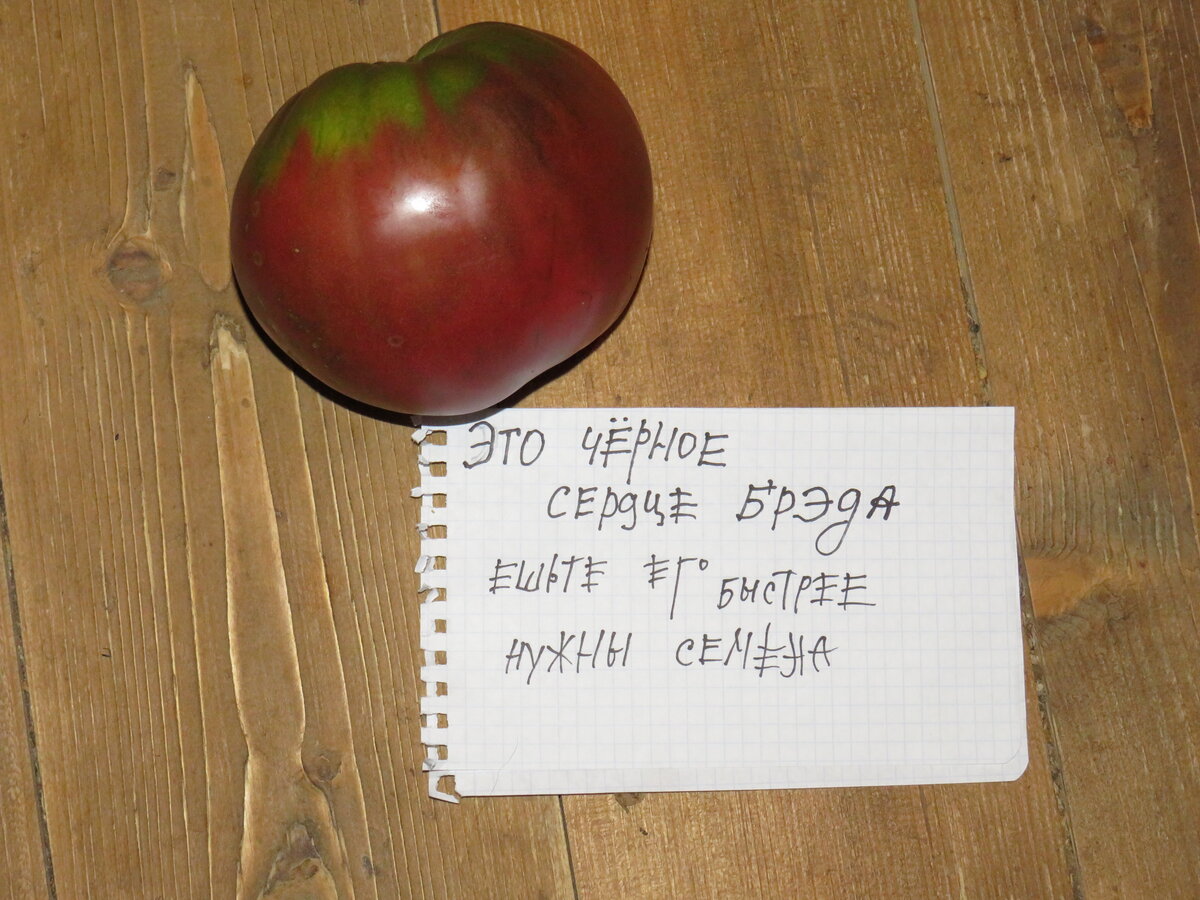 ЭТО ЧЁРНОЕ
СЕРДЦЕ БРЭДА
ЕШЬТЕ ЕГО БЫСТРЕЕ
НУЖНЫ СЕМЕНА